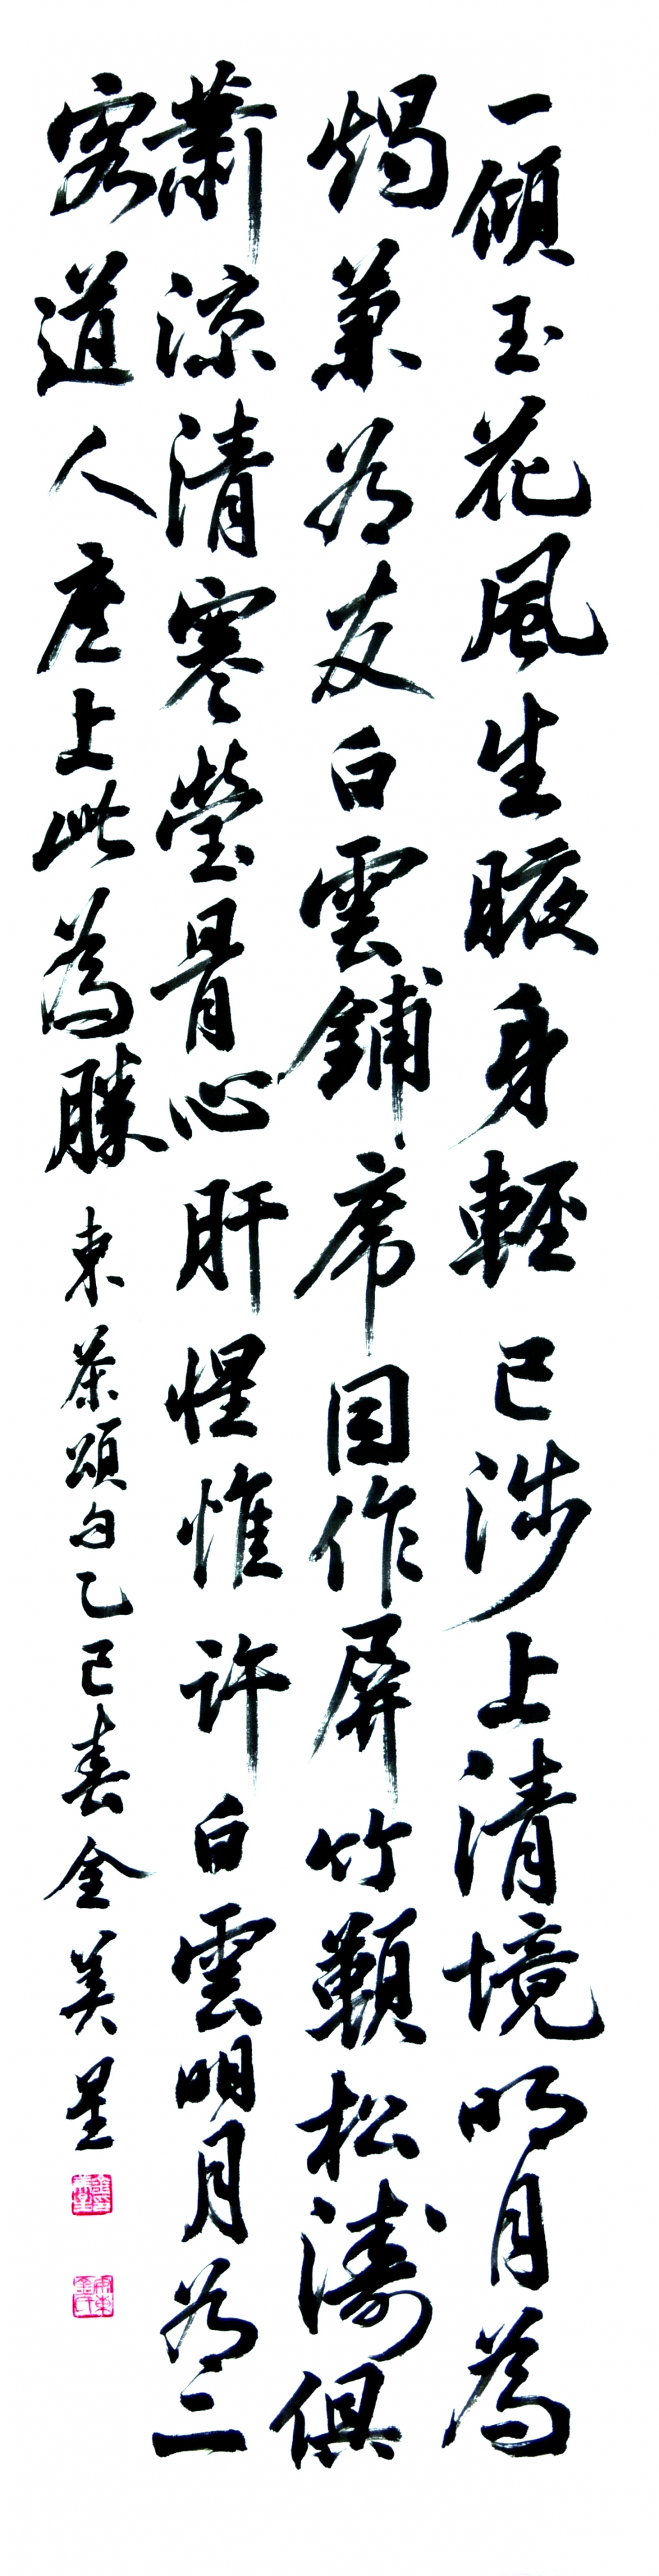 一傾玉花風生腋身輕已涉上清境明月為
燭兼為友白雲鋪席因作屏竹籟松濤俱
蕭凉清寒瑩骨心肝惺惟許白雲明月為二
客道人座上此為勝
東茶頌句乙巳春金美星